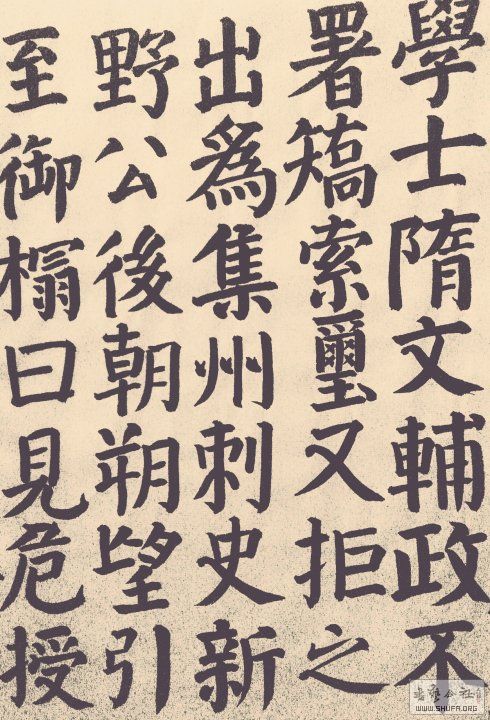 學士隋文輔政不
署矯索璽又拒之
出爲集州刺史新
野公後朝朔望引
至御榻曰見危授
书艺公社
WWW.SHUFA.ORG